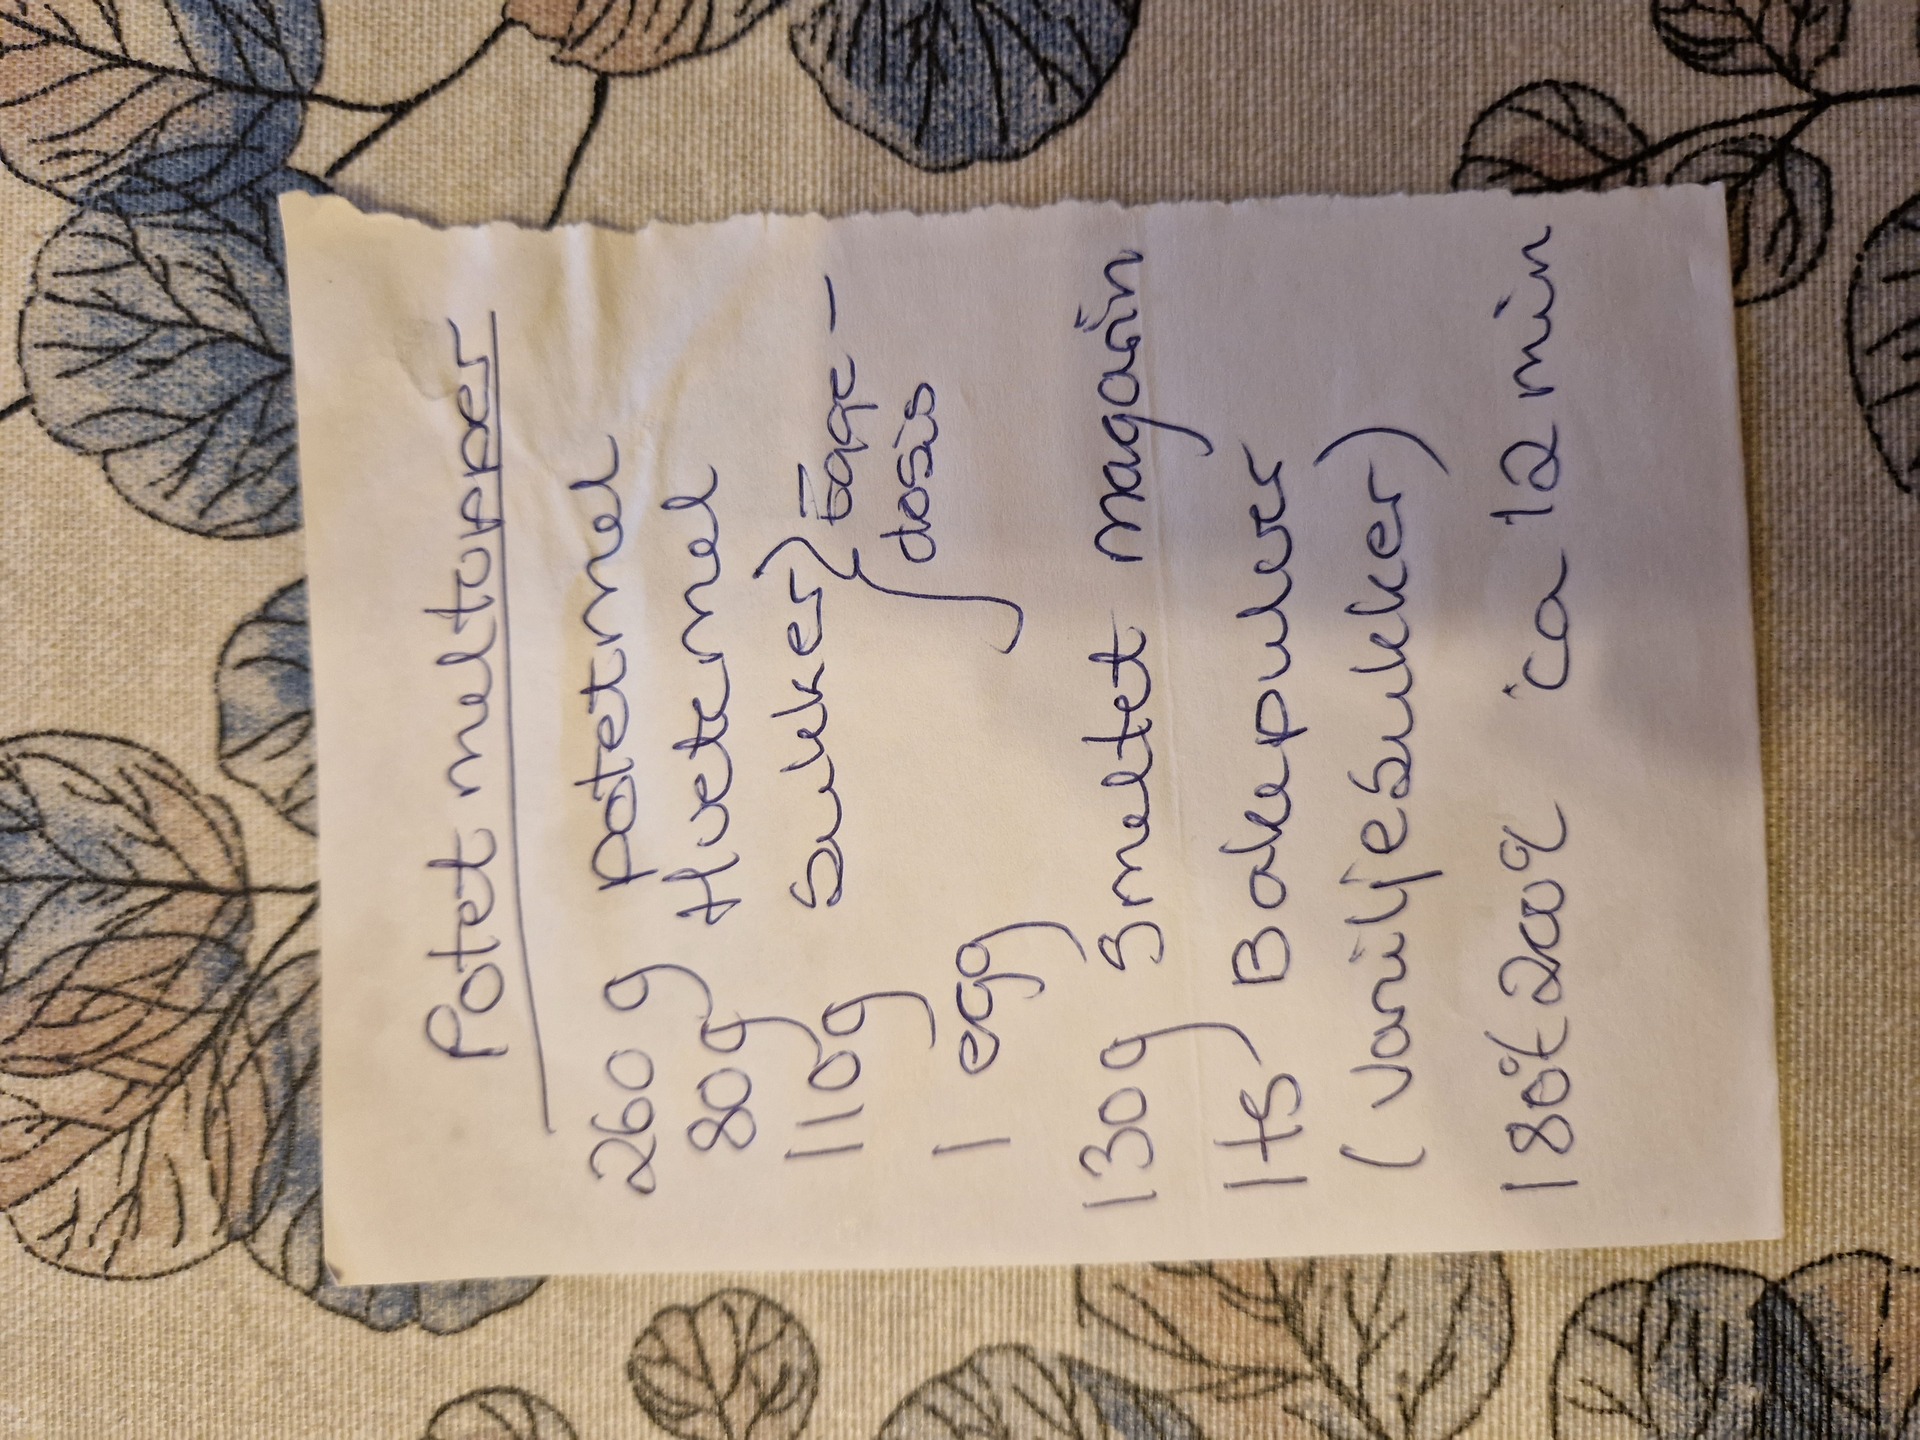 Potetmeltopper
260g potetmel
80g Hvetemel
110g Sukker } Egge-
dosis
1 egg
130g Smeltet magarin
1ts Bakepulver
(Vaniljesukker)
180℃ 200℃ ca 12 min